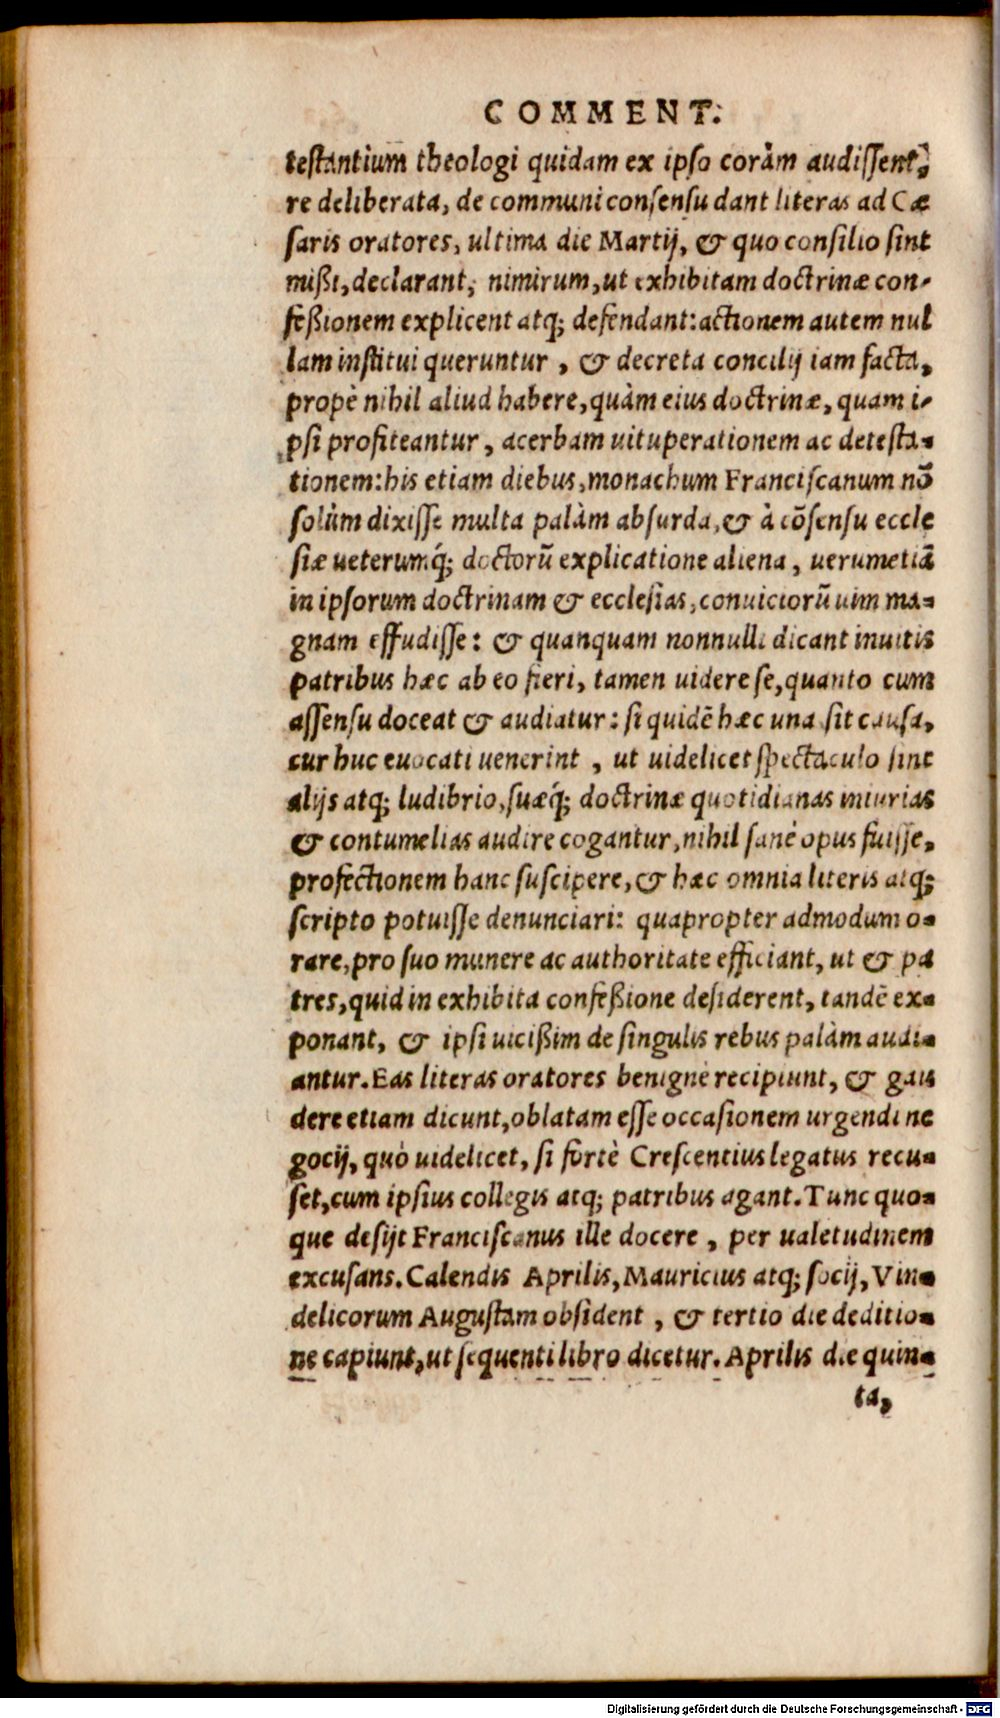 COMMENT.
testantium theologi quidam ex ipso coràm audissent,
re deliberata, de communi consensu dant literas ad Cæ
saris oratores, ultima die Martij, & quo consilio sint
mißi, declarant, nimirum, ut exhibitam doctrinæ con-
feßionem explicent atq; defendant: actionem autem nul
lam institui queruntur, & decreta concilij iam facta,
propè nihil aliud habere, quàm eius doctrinæ, quam i-
psi profiteantur, acerbam uituperationem ac detesta-
tionem: his etiam diebus, monachum Franciscanum nõ
solùm dixisse multa palàm absurda, & à cõsensu eccle
siæ ueterumq́; doctorũ explicatione aliena, uerumetiã
in ipsorum doctrinam & ecclesias, conuiciorũ uim ma-
gnam effudisse: & quanquam nonnulli dicant inuitis
patribus hæc ab eo fieri, tamen uidere se, quanto cum
assensu doceat & audiatur: si quidẽ hæc una sit causa,
cur huc euocati uenerint, ut uidelicet spectaculo sint
alijs atq; ludibrio, suæq́; doctrinæ quotidianas iniurias
& contumelias audire cogantur, nihil sanè opus fuisse,
profectionem hanc suscipere, & hæc omnia literis atq;
scripto potuisse denunciari: quapropter admodum o-
rare, pro suo munere ac authoritate efficiant, ut & pa
tres, quid in exhibita confeßione desiderent, tandẽ ex-
ponant, & ipsi uicißim de singulis rebus palàm audi-
antur. Eas literas oratores benignè recipiunt, & gau
dere etiam dicunt, oblatam esse occasionem urgendi ne
gocij, quò uidelicet, si fortè Crescentius legatus recu-
set, cum ipsius collegis atq; patribus agant. Tunc quo-
que desijt Franciscanus ille docere, per ualetudinem
excusans. Calendis Aprilis, Mauricius atq; socij, Vin-
delicorum Augustam obsident, & tertio die deditio-
ne capiunt, ut sequenti libro dicetur. Aprilis die quin-
ta,
Digitalisierung gefördert durch die Deutsche Forschungsgemeinschaft - DFG